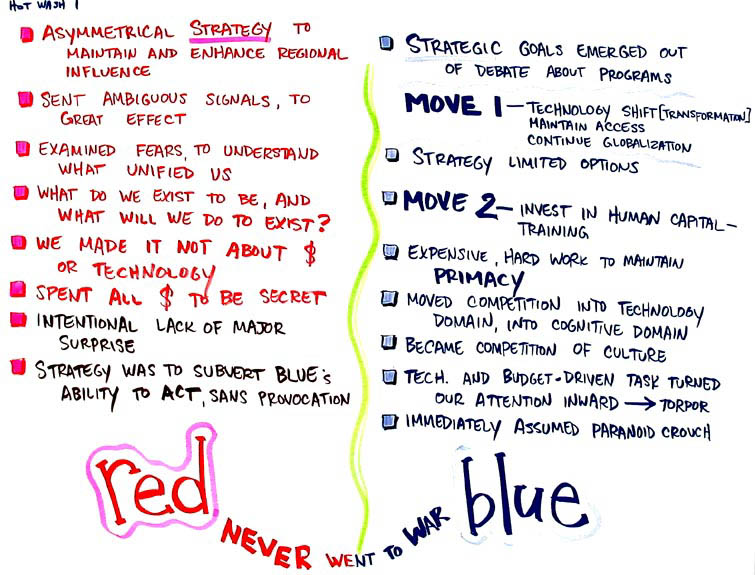 HOT WASH 1
ASYMMETRICAL STRATEGY TO
MAINTAIN AND ENHANCE REGIONAL
INFLUENCE
SENT AMBIGUOUS SIGNALS, TO
GREAT EFFECT
EXAMINED FEARS, TO UNDERSTAND
WHAT UNIFIED US
WHAT DO WE EXIST TO BE, AND
WHAT WILL WE DO TO EXIST?
WE MADE IT NOT ABOUT $
OR TECHNOLOGY
SPENT ALL $ TO BE SECRET
INTENTIONAL LACK OF MAJOR
SURPRISE
STRATEGY WAS TO SUBVERT BLUE'S
ABILITY TO ACT, SANS PROVOCATION
STRATEGIC GOALS EMERGED OUT
OF DEBATE ABOUT PROGRAMS
MOVE 1 — TECHNOLOGY SHIFT [TRANSFORMATION]
MAINTAIN ACCESS
CONTINUE GLOBALIZATION
STRATEGY LIMITED OPTIONS
MOVE 2 — INVEST IN HUMAN CAPITAL —
TRAINING
EXPENSIVE, HARD WORK TO MAINTAIN
PRIMACY
MOVED COMPETITION INTO TECHNOLOGY
DOMAIN, INTO COGNITIVE DOMAIN
BECAME COMPETITION OF CULTURE
TECH. AND BUDGET-DRIVEN TASK TURNED
OUR ATTENTION INWARD → TORPOR
IMMEDIATELY ASSUMED PARANOID CROUCH
red NEVER WENT TO WAR blue